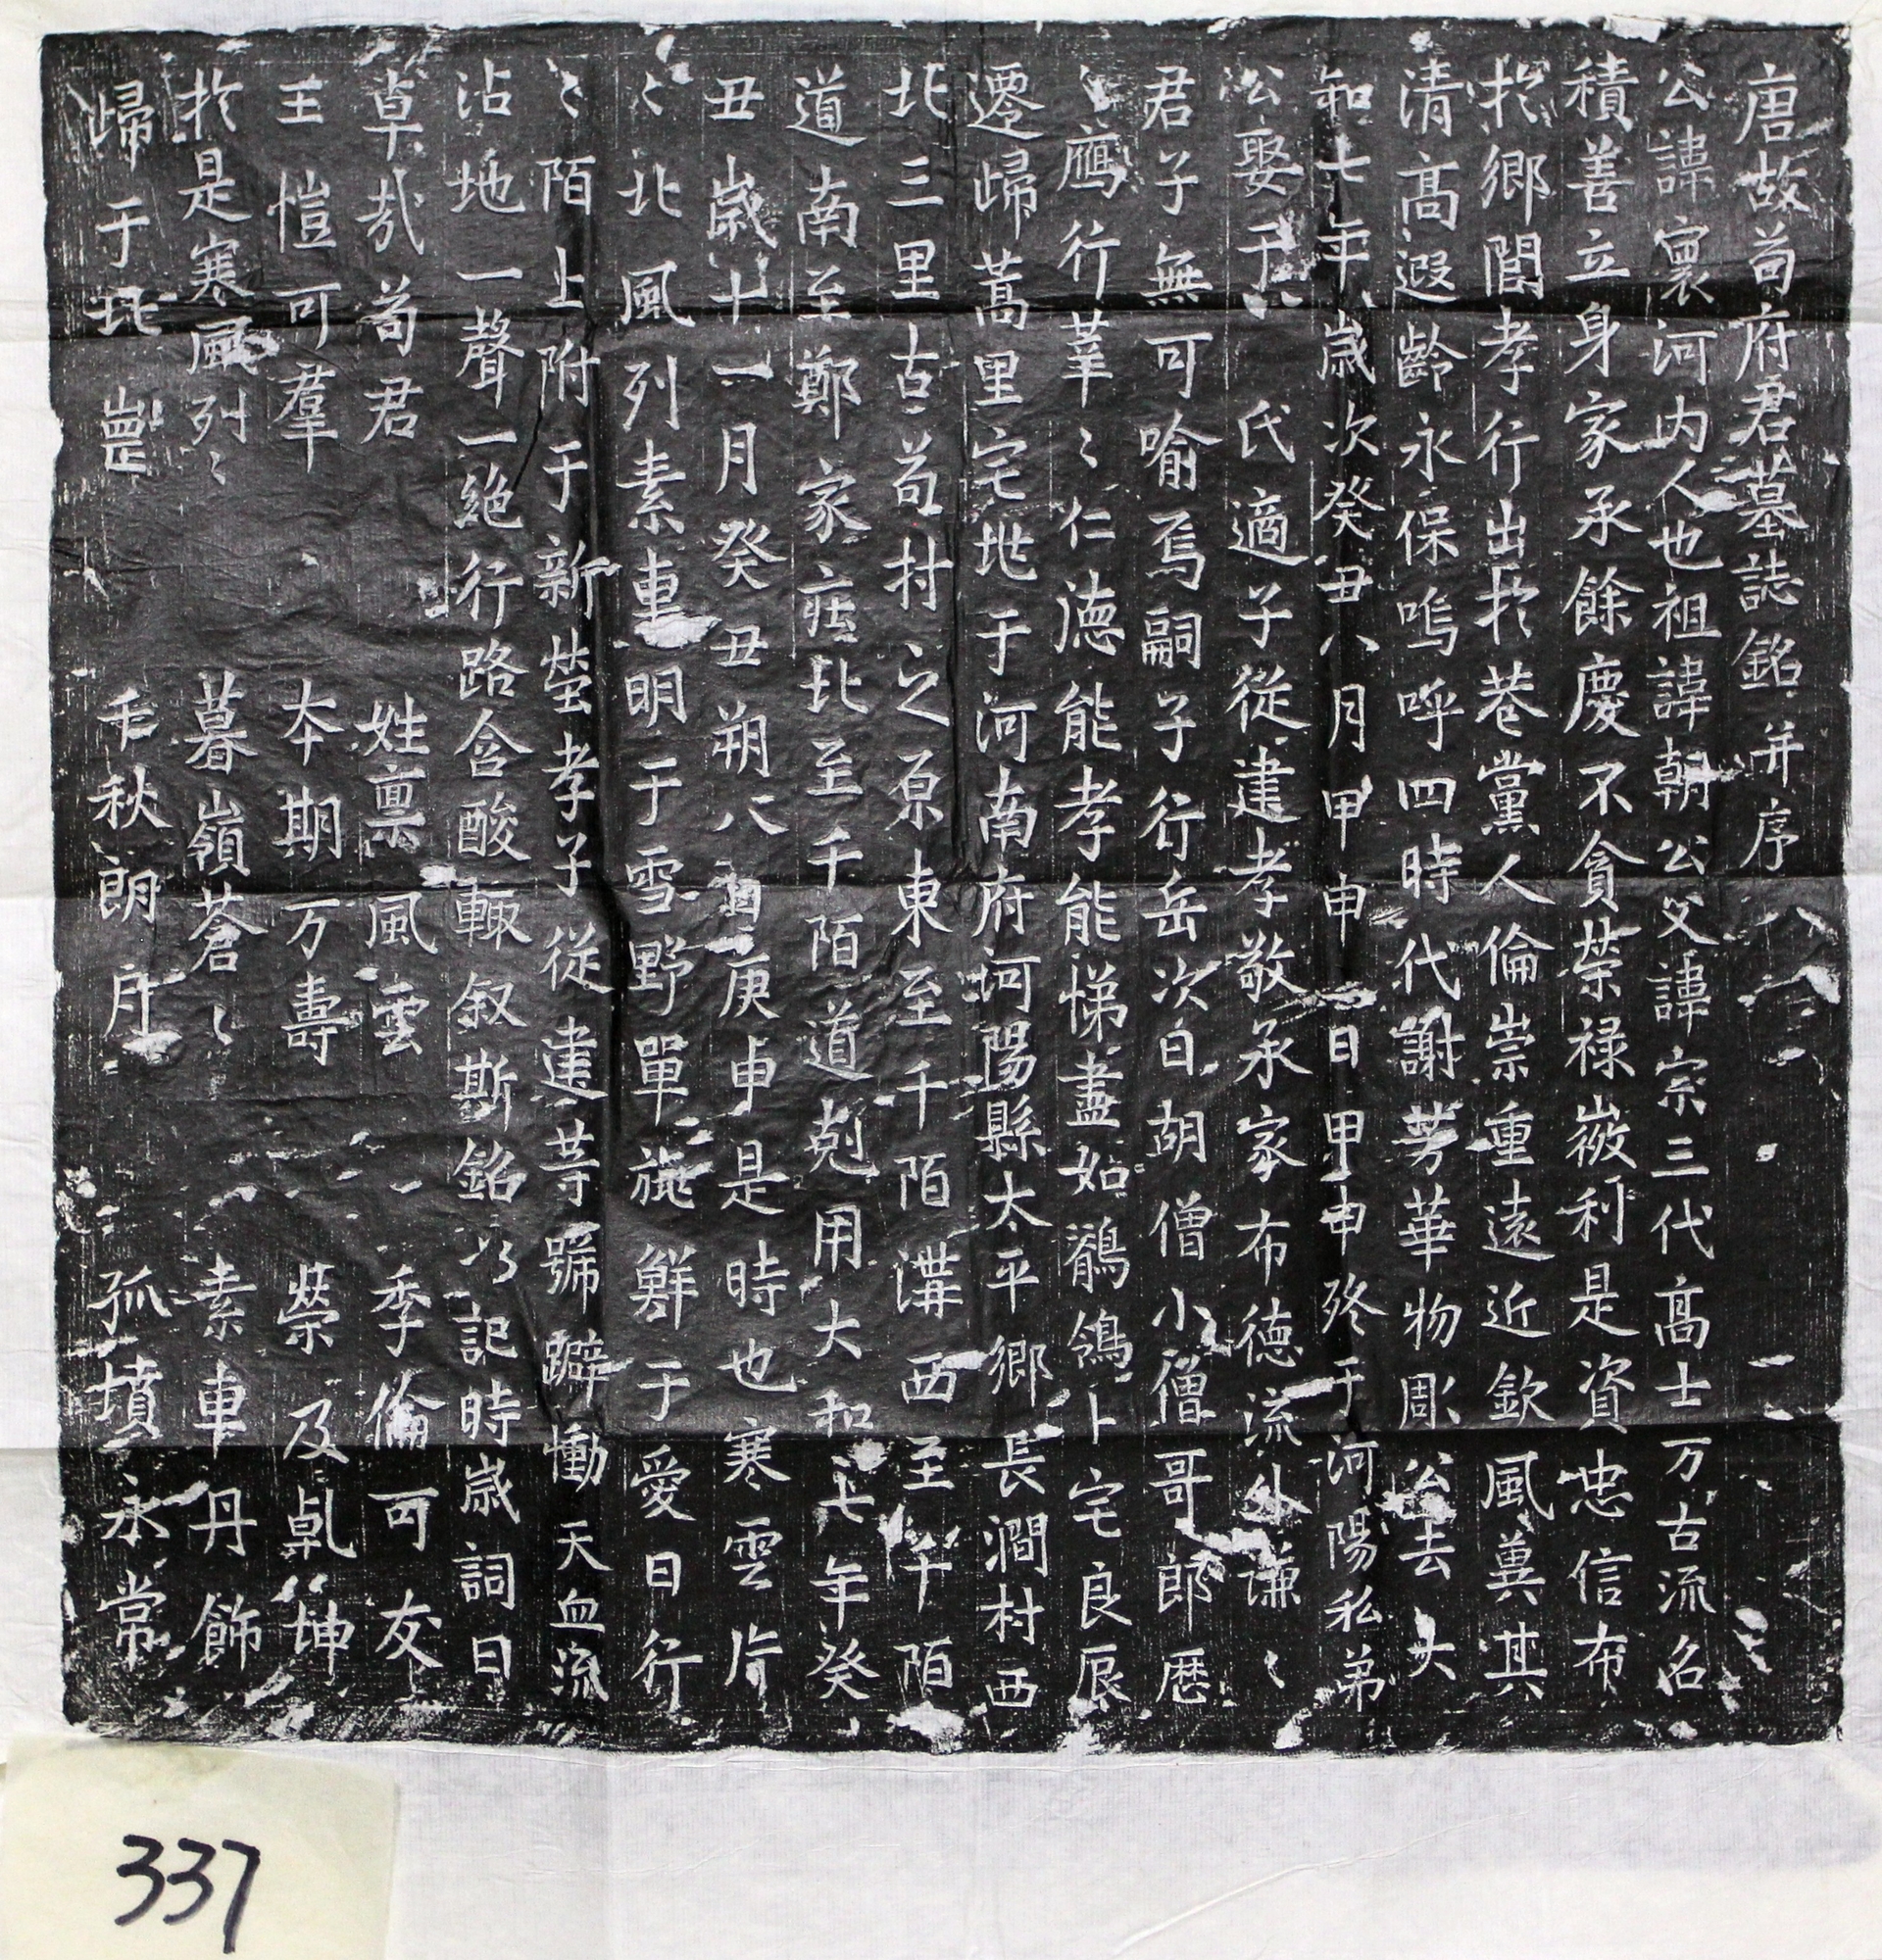 唐故苟府君墓誌銘并序
公諱寰河内人也祖諱朝公父諱宗三代髙士万古流名
積善立身家承餘慶不貪榮禄微利是資忠信布
扵郷閭孝行出扵巷黨人倫崇重遠近欽風冀其
清髙遐齡永保嗚呼四時代謝芳華物彫公去大
和七年歲次癸丑八月甲申一日甲申終于河陽私弟
公娶于氏適子從建孝敬承家布德流外謙〻
君子無可喻焉嗣子行岳次曰胡僧小僧哥郎愿
〻鴈行羣〻仁德能孝能悌盡如鶺鴒卜宅良辰
遷歸蒿里宅地于河南府河陽縣太平郷長澗村西
北三里古苟村之原東至千陌溝西至千陌
道南至鄭家庄北至千陌道剋用大和七年癸
丑歲十一月癸丑朔八日庚申是時也寒雲片
〻北風列素車明于雪野單旐鮮于愛日行
〻陌上附于新塋孝子從建等號躃慟天血流
沾地一聲一絶行路含酸輙叙斯銘以記時歲詞曰
卓㢤苟君 姓禀風雲 季倫可友
王愷可羣 本期万壽 榮及乹坤
扵是寒風列〻 暮嶺蒼〻 素車丹飾
歸于北𫶇 千秋朗月 孤墳永常
337